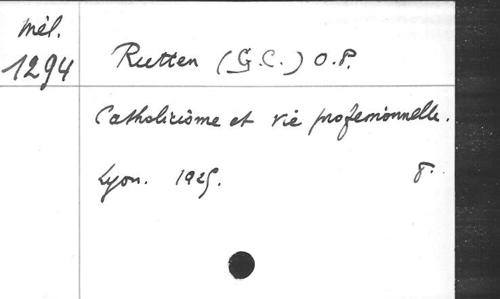 Mél.
1294
Rutten (G.C.) O.P.
Catholicisme et vie professionnelle.
Lyon. 1925. 8.